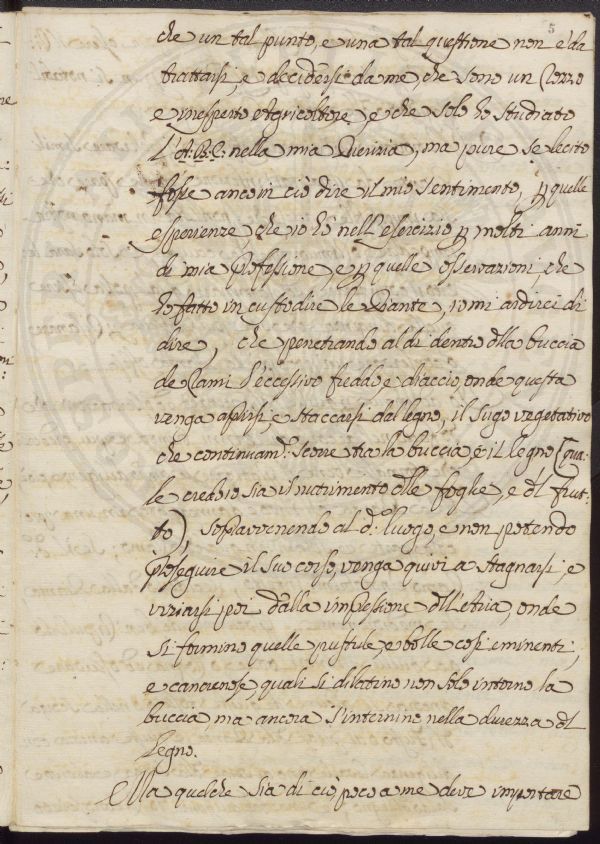 5
che un tal punto, e una tal questione non è da
trattarsi, e decidersi da me, che sono un Rozzo
e inesperto Agricoltore, e che solo hò studiato
l'A: B: C: nella mia Puerizia, ma pure se lecito
fosse anco in ciò dire il mio sentimento, p quelle
esperienze, che io hò nell'esercizio p molti anni
di mia Professione, e p quelle osservazioni che
hò fatto in custodire le Piante, io mi ardirei di
dire, che penetrando al di dentro dlla buccia
de Rami l'eccessivo freddo, e diaccio, onde questa
venga aprirsi, e staccarsi dal legno, il sugo vegetativo
che continuam: scorre tra la buccia, e il legno (qua-
le credo io sia il nutrimento dlle foglie, e dl frut-
to), sopravvenendo al d: luogo, e non potendo
proseguire il suo corso, venga quivi a stagnarsi, e
viziarsi poi dalla impressione dll'Aria, onde
si formino quelle pustule, e bolle così eminenti,
e cancrenose, quali si dilatino non solo intorno la
buccia, ma ancora s'internino nella durezza dl
legno.
Ma quelche sia di ciò, poco a me deve importare